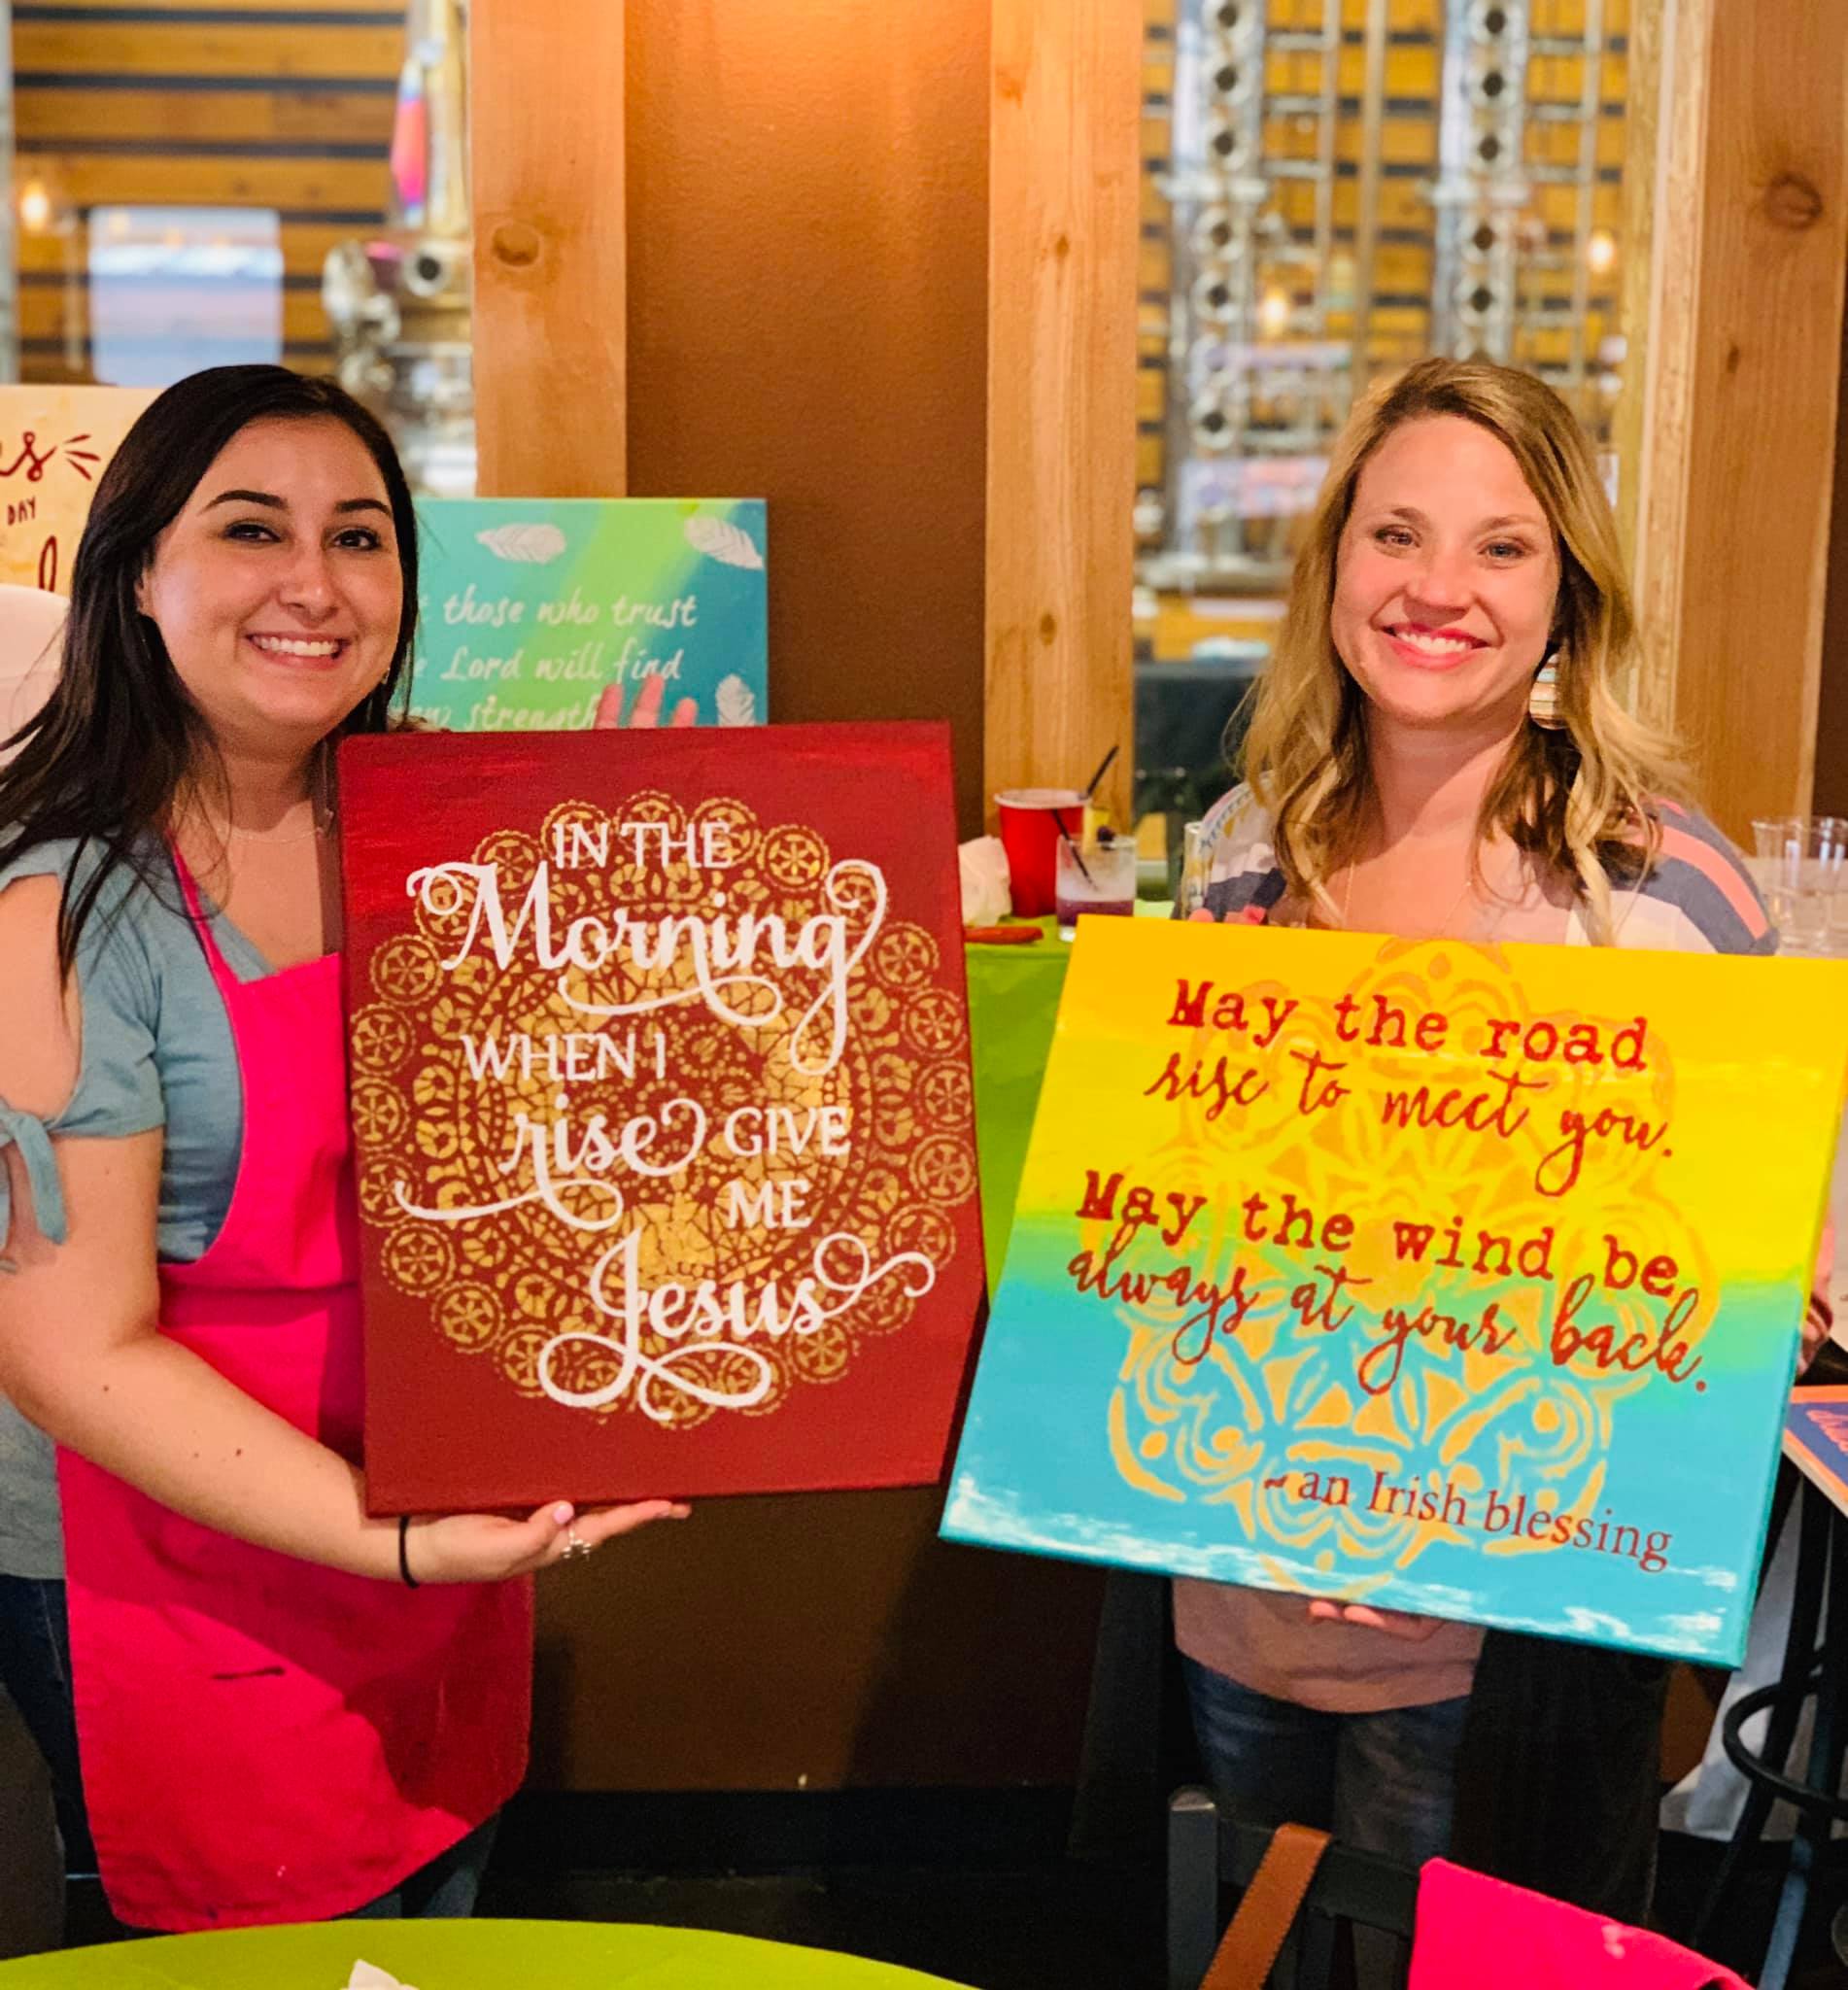 DAY
those who trust
Lord will find
strength
IN THE
Morning
WHEN I
rise GIVE
ME
Jesus
May the road
rise to meet you.
May the wind be
always at your back.
~ an Irish blessing